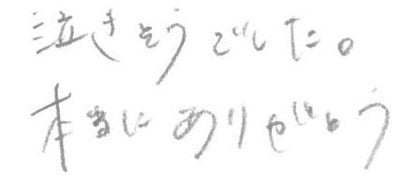 泣きそうでした。
本当にありがとう